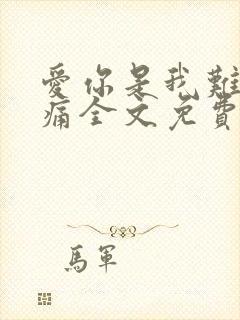 愛你是我難
痛全文免費
馬軍